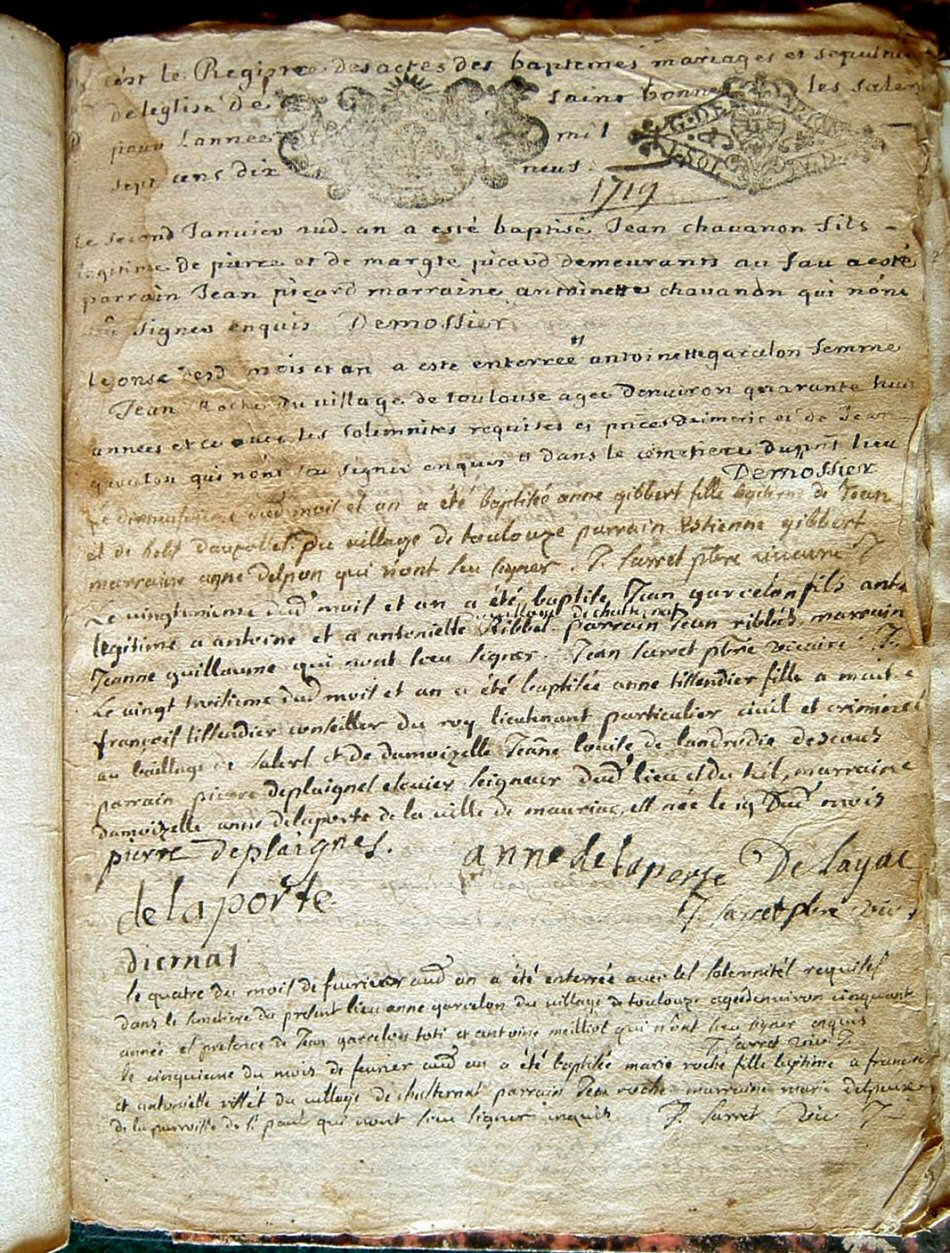 cest le Registre des actes des baptemes mariages et sepultu
de leglise de saint bonnet les salers
pour lannee mil
sept cens dix neuf.
1719
le second Janvier aud. an a esté baptisé Jean chavanon fils
legitime de pierre et de margte picard demeurants au fau a esté
parrain Jean picard marraine antoinette chavanon qui nont
signer enquis Demossier
le onse desd mois et an a este enterrée antoinette garcelon femme
Jean Roche du village de toulouse agee denviron quarante huit
annees et ce avec les solemnites requises es prnces deimeric et de Jean
qui nont sçu signer enquis dans le cemetiere du pnt lieu
Demossier
Le dud mois et an a été baptisée anne gibbert fille legitime de Jean
et de du village de toulouze parrain Estienne gibbert
marraine anne delpon qui nont seu signer. J. Sarret ptre vicaire
Le dud mois et an a été baptisé Jean garcelon fils
legitime a antoine et a antoinette Ribbet parrain Jean ribbes, marrain
Jeanne guillaume qui nont seu signer. Jean Sarret ptre vicaire
Le vingt troisieme dud mois et an a été baptisée anne tissendier fille a
françois tissendier conseiller du roy lieutenant particulier civil et criminel
au bailliage de salers et de damoizelle Jeanne louise de
parrain pierre deplaignes escuier seigneur dud lieu et du marraine
damoizelle anne delaporte de la ville de mauriac, est née le 19 dud mois
pierre deplaignes. anne de laporte De Layac
de laporte J. Sarret ptre vic
diernat
le quatre du mois de fevrier aud an a été enterrée avec les solemnités requises
dans le semetiere du present lieu anne garcelon du village de toulouze agee denviron cinquante
année es presence de Jean garcelon et antoine meilliot qui n'ont seu signer enquis
J. Sarret vic
le cinquieme du mois de fevrier aud an a été baptisée marie roche fille legitime a francois
et antoinette du village de chasternat parrain Jean roche marraine marie
de la parroisse de St paul qui nont seu signer inquis J. Sarret vic